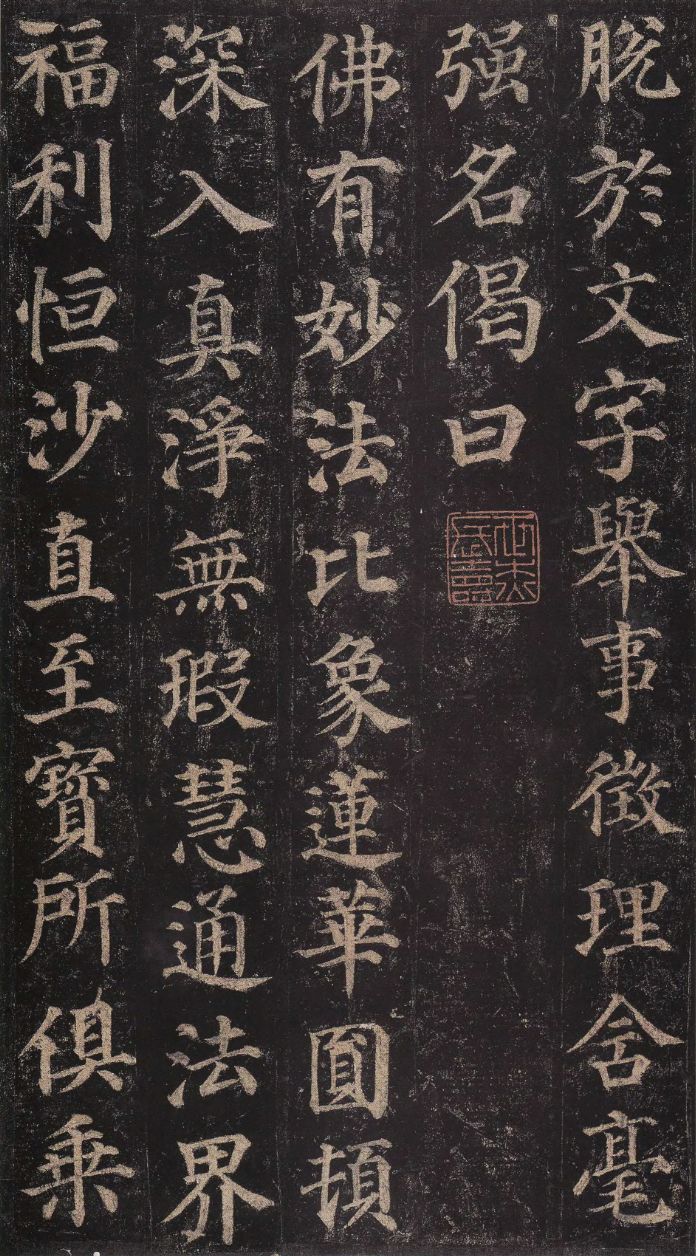 脫於文字舉事徵理含毫
强名偈曰
佛有妙法比象蓮華圓頓
深入真淨無瑕慧通法界
福利恒沙直至寶所俱乘